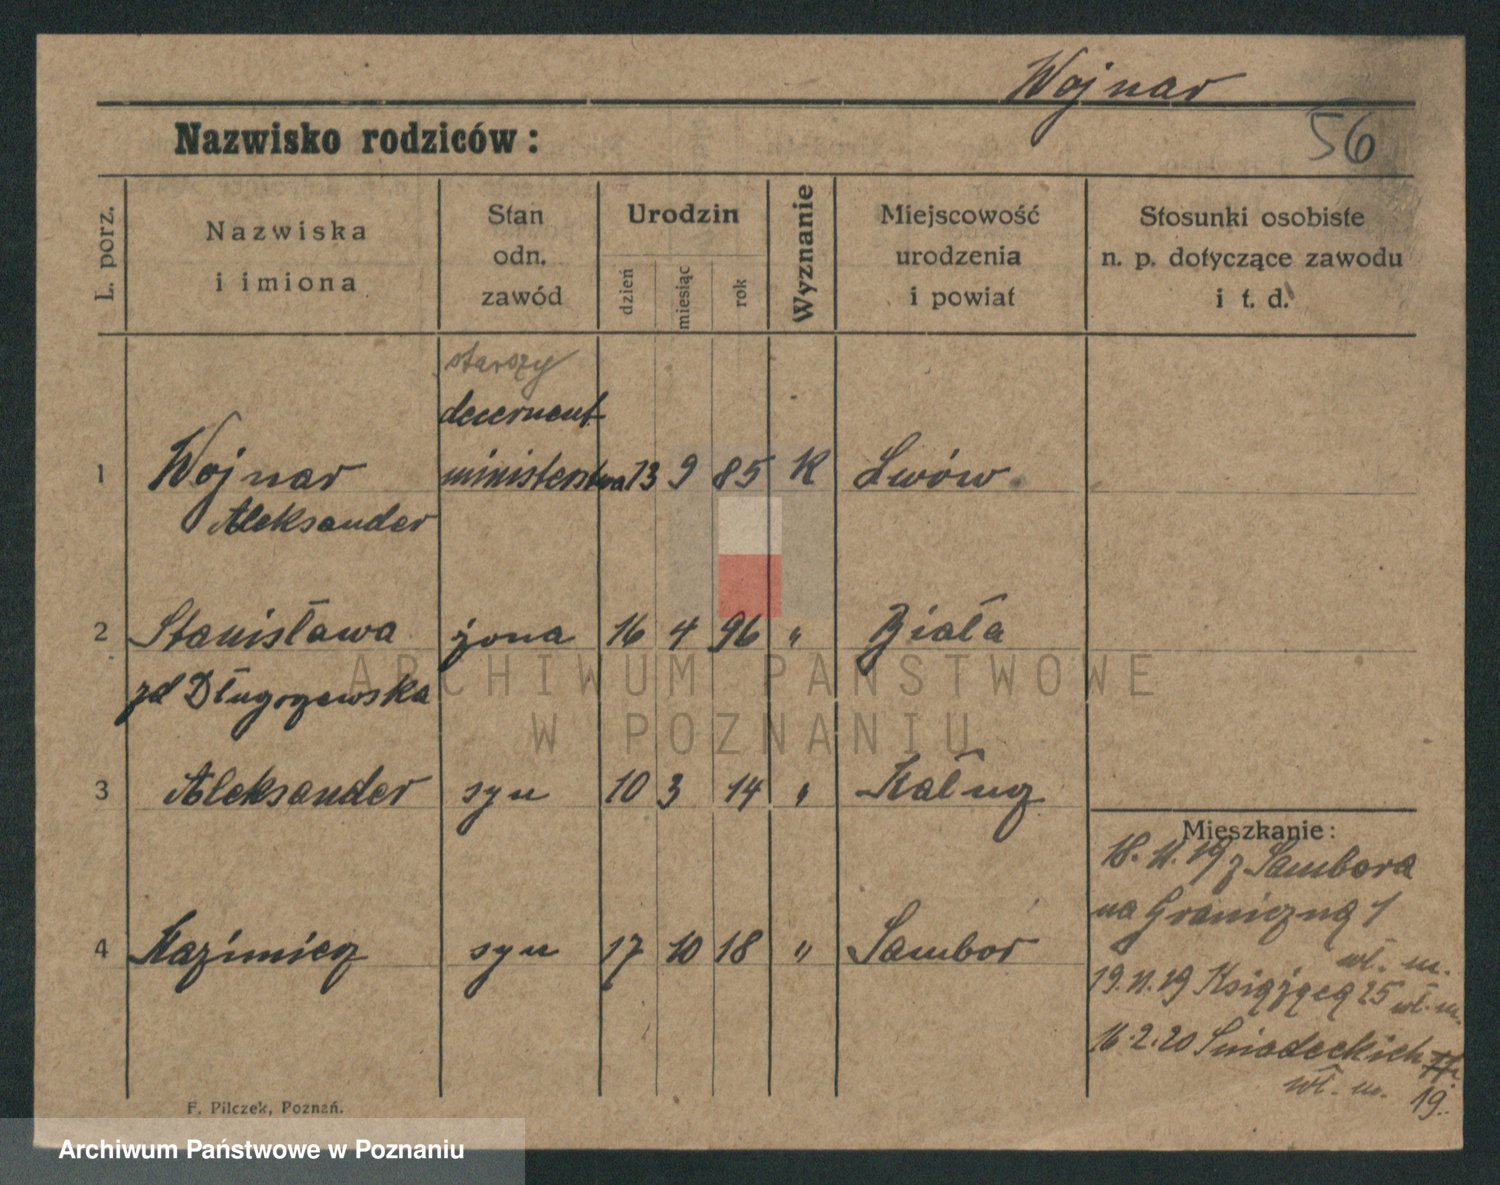 Wojnar
Nazwisko rodziców:
56
L. porz.
Nazwiska
i imiona
Stan
odn.
zawód
Urodzin
dzień
miesiąc
rok
Wyznanie
Miejscowość
urodzenia
i powiat
Stosunki osobiste
n. p. dotyczące zawodu
i t. d.
starszy
decernent
1 Wojnar ministerstwa 13 9 85 K Lwów
Aleksander
2 Stanisława żona 16 4 96 " Biała
zd Długoszewska
3 Aleksander syn 10 3 14 " Kałusz
4 Kazimierz syn 17 10 18 " Sambor
Mieszkanie:
18.11.19 z Sambora
na Graniczną 1
wł. m.
19.11.19 Książęcą 25 wł. m.
16.2.20 Śniadeckich
wł. m. 19.
F. Pilczek, Poznań.
ARCHIWUM PAŃSTWOWE
W POZNANIU
Archiwum Państwowe w Poznaniu